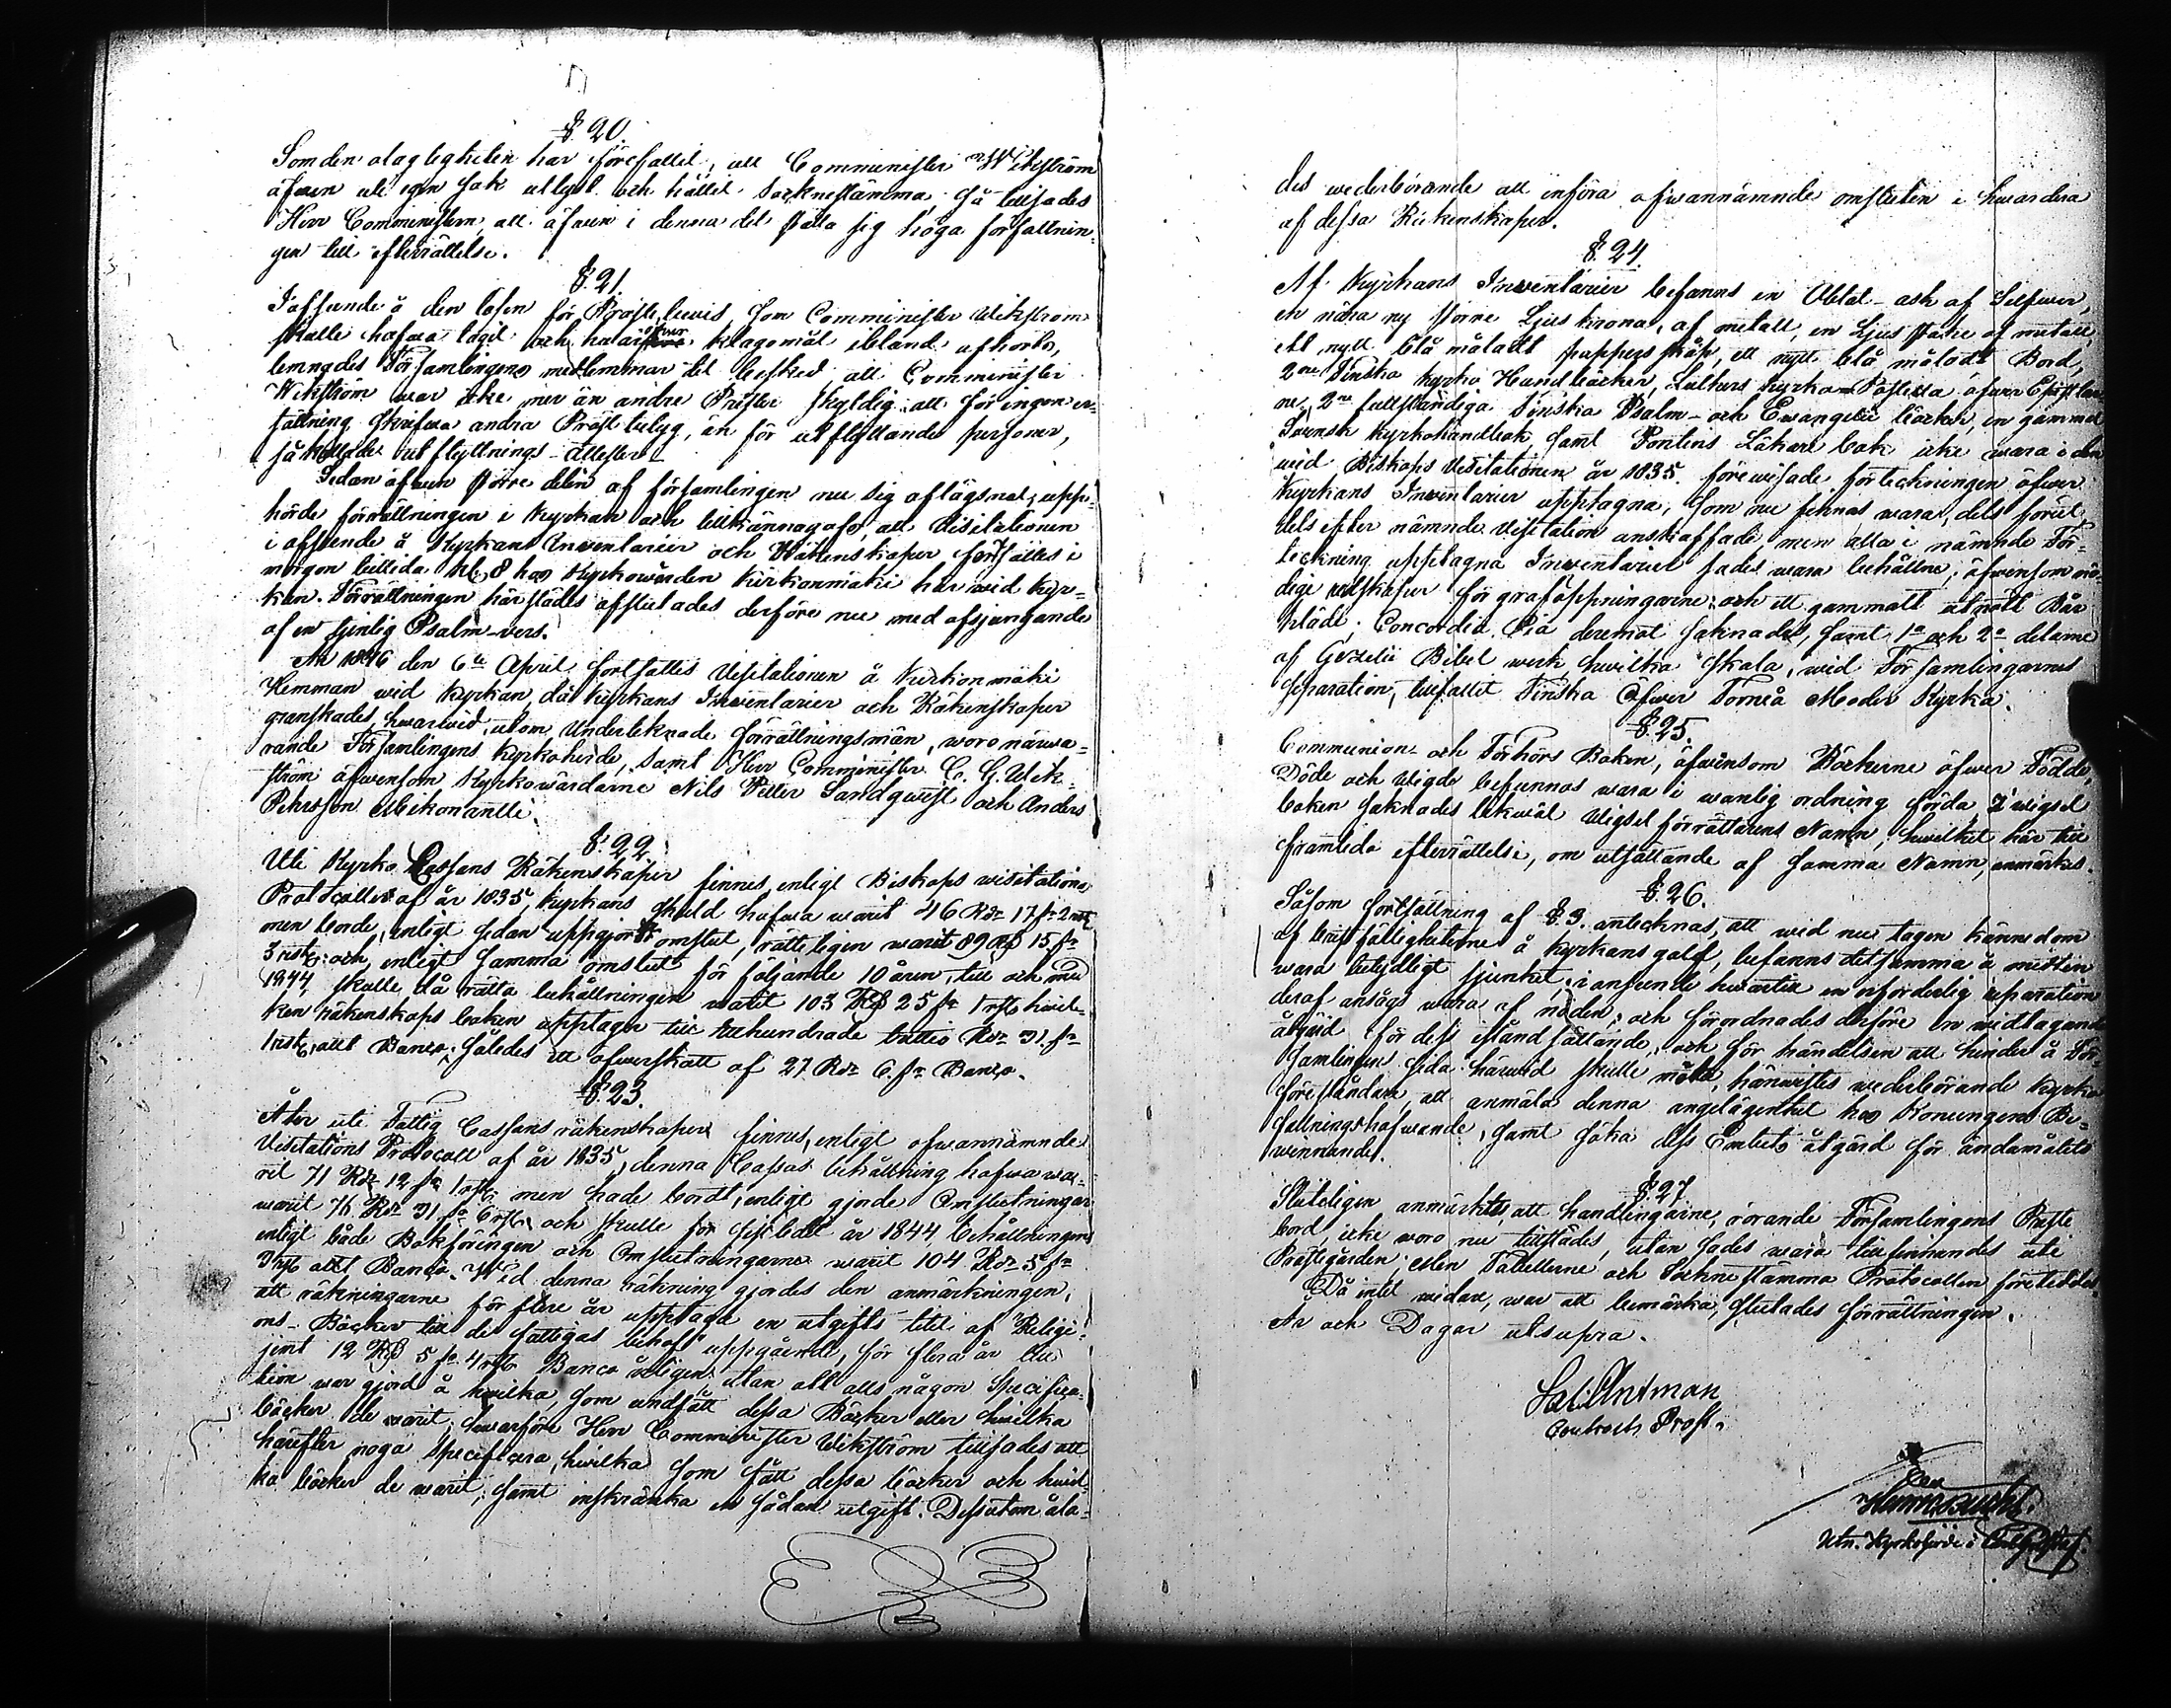 §. 20.
Som den olagligheten har förefallit, att Comminister Wikström
äfwen uti egen sak utlyst och hållit Socknestämma, så tillsades
Herr Comministern, att äfwen i denna del ställa sig höga författnin-
gen till efterrättelse.
§. 21.
I afseende å den lösen för Prästbewis, som Comminister Wikström
skulle hafwa tagit och klagomål ibland afhörts,
lemnades Församlingens medlemmar det besked, att Comminister
Wikström war icke mer än andre Prester skyldig, att för ingen er-
sättning skrifwa andra Prästbetyg, än för utflyttande personer,
så kallade utflyttnings-attester.
Sedan äfwen större delen af församlingen nu sig aflägsnat, upp-
hörde förrättningen i kyrkan och tillkännagafs, att Visitationen
i afseende å Kyrkans Inventarier och Räkenskaper fortsättes i
morgon bittida kl. 8 hos Kyrkowärden Kirkonmäki här wid kyr-
kan. Förrättningen härstädes afslutades derföre nu med afsjungande
af en ljenlig Psalm-vers.
År 1846 den 6te April fortsattes Visitationen å Kirkonmäki
Hemman wid kyrkan, då kyrkans Inventarier och Räkenskaper
granskades, hwarwid, utom Undertecknade förrättningsmän, woro närwa-
rande Församlingens kyrkoherde, samt Herr Comminister C. G. Wik-
ström äfwensom Kyrkowärdarne Nils Petter Sandqwist och Anders
Pehrsson Mikonantti.
§. 22.
Uti Kyrko Cassans Räkenskaper finnes, enligt Biskops visitations
Protocollet af år 1835, kyrkans skuld hafwa warit 46 Rdr 17 sk 2 rst
men borde, enligt sedan uppgjordt omslut, rätteligen warit 89 Rd 15 sk
3 rst; och, enligt samma omslut för följande 10 åren, till och med
1844, skulle då rätta behållningen warit 103 Rd 25 sk 1 rst hwil-
ken räkenskaps boken upptager till Etthundrade trettio Rdr 31 sk
1 rst, allt Banco, således ett öfwerskott af 27 Rdr 6 sk Banco.
§. 23.
Åter uti Fattig Cassans räkenskaper finnes, enligt ofwannämnde
Visitations Protocoll af år 1835, denna Cassas behållning hafwa wa-
rit 71 Rdr 12 sk 1 rst; men hade bordt, enligt gjorde Omslutningar
warit 76 Rdr 31 sk 6 rst och skulle för sistledet år 1844 behållningen
enligt både Bokföringen och Omslutningarne warit 104 Rdr 5 sk
3 rst allt Banco. Wid denna räkning gjordes den anmärkningen,
att räkningarne för flere år upptaga en utgifts titel af Religi-
ons-Böcker till de fattigas behof uppgående, för flera år till
jemt 12 Rd 5 sk 4 rst Banco årligen utan att alls någon Specifica-
tion war gjord å hwilka, som undfått dessa Böcker eller hwilka
böcker de warit; hwarföre Herr Comminister Wikström tillsades att
härefter noga specificera, hwilka som fått dessa böcker och hwil-
ka böcker de warit, samt inskränka en sådan utgift. Dessutom åla-
des wederbörande att införa ofwannämnde omsluten i hwardera
af dessa Räkenskaper.
§. 24.
Af Kyrkans Inventarier befanns en Oblat-ask af Silfwer,
en nära ny större Ljuskrona, af metall, en Ljusstake af metall,
ett nytt blå måladt pappersskåp, ett nytt blå måladt Bord,
2ne Finska kyrko Handböcker, Luthers kyrko-Postilla öfwer Epistlar-
ne, 2ne fullständiga Finska Psalm- och Ewangelii böcker, en gammal
Swensk Kyrkohandbok, samt Pontins Läkare bok icke wara i den
wid Biskops Visitationen år 1835 förewisade förteckningen öfwer
Kyrkans Inventarier upptagna, som nu finnas wara, dels förut
dels efter nämnde Visitation anskaffade men alla i nämnde För-
teckning upptagna Inventarier sades wara behållne, äfwensom nö-
dige redskaper för graföppningarne och ett gammalt utnött Bår
kläde; Concordia Pia deremot saknades, samt 1a och 2a delarne
af Gezelii Bibel werk hwilka skola, wid Församlingarnes
separation, tillfallit Finska Öfwer Torneå Moder Kyrka.
§. 25.
Communion- och Förhörs Boken, äfwensom Böckerne öfwer Födde,
Döde och Wigde befunnos wara i wanlig ordning förda, I wigsel
boken saknades likwäl Wigsel förrättarens Namn, hwilket här till
framtida efterrättelse, om utsättande af samma Namn, anmärkes.
§. 26.
Såsom fortsättning af § 3. antecknas, att wid nu tagen kännedom
af bristfälligheterne å kyrkans golf, befanns detsamma å midten
wara betydligt sjunket, i anseende hwartill en oförderlig reparation
deraf ansågs wara af nöden, och förordnades derföre en widtagande
åtgärd för dess iståndsättande, och för händelsen att hinder å För-
samlingens sida härwid skulle möta, hänwistes wederbörande kyrko
föreståndare, att anmäla denna angelägenhet hos Konungens Be-
fallningshafwande, samt söka dess Embets åtgärd för ändamålets
winnande.
§. 27.
Sluteligen anmärktes, att handlingarne, rörande Församlingens Preste
bord, icke woro nu tillstädes, utan sades wara tillfinnandes uti
Prästgården; men Tabellerne och Sockne stämmo Protocollen företeddes.
Då intet widare, war att bemärka, slutades förrättningen.
År och Dagar utsupra.
Sal. Antman
Contracts Prost.